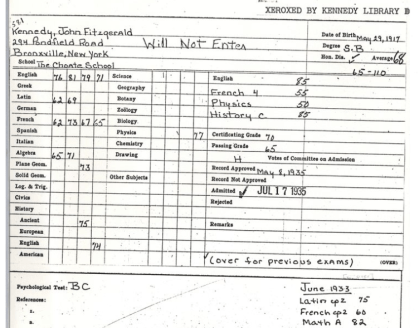 XEROXED BY KENNEDY LIBRARY
Kennedy, John Fitzgerald
Date of Birth May 29, 1917
294 Pondfield Road
Will Not Enter
Degree S.B.
Bronxville, New York
Hon. Dis. ✓ Average 68
School The Choate School
65-110
English 76 81 79 71 Science English 85
Greek Geography French 4 55
Latin 62 69 Botany Physics 50
German Zoölogy History C 85
French 62 73 67 65 Biology
Spanish Physics 77 Certificating Grade 70
Italian Chemistry Passing Grade 65
Algebra 65 71 Drawing H Votes of Committee on Admission
Plane Geom. 73 Record Approved May 8, 1935
Solid Geom. Other Subjects Record Not Approved
Log. & Trig. Admitted JUL 17 1935
Civics Rejected
History
Ancient 75 Remarks
European
English 74
American ✓ (over for previous exams) (OVER)
Psychological Test: BC
June 1933
References:
Latin cp2 75
1.
French cp2 60
2.
Math A 82